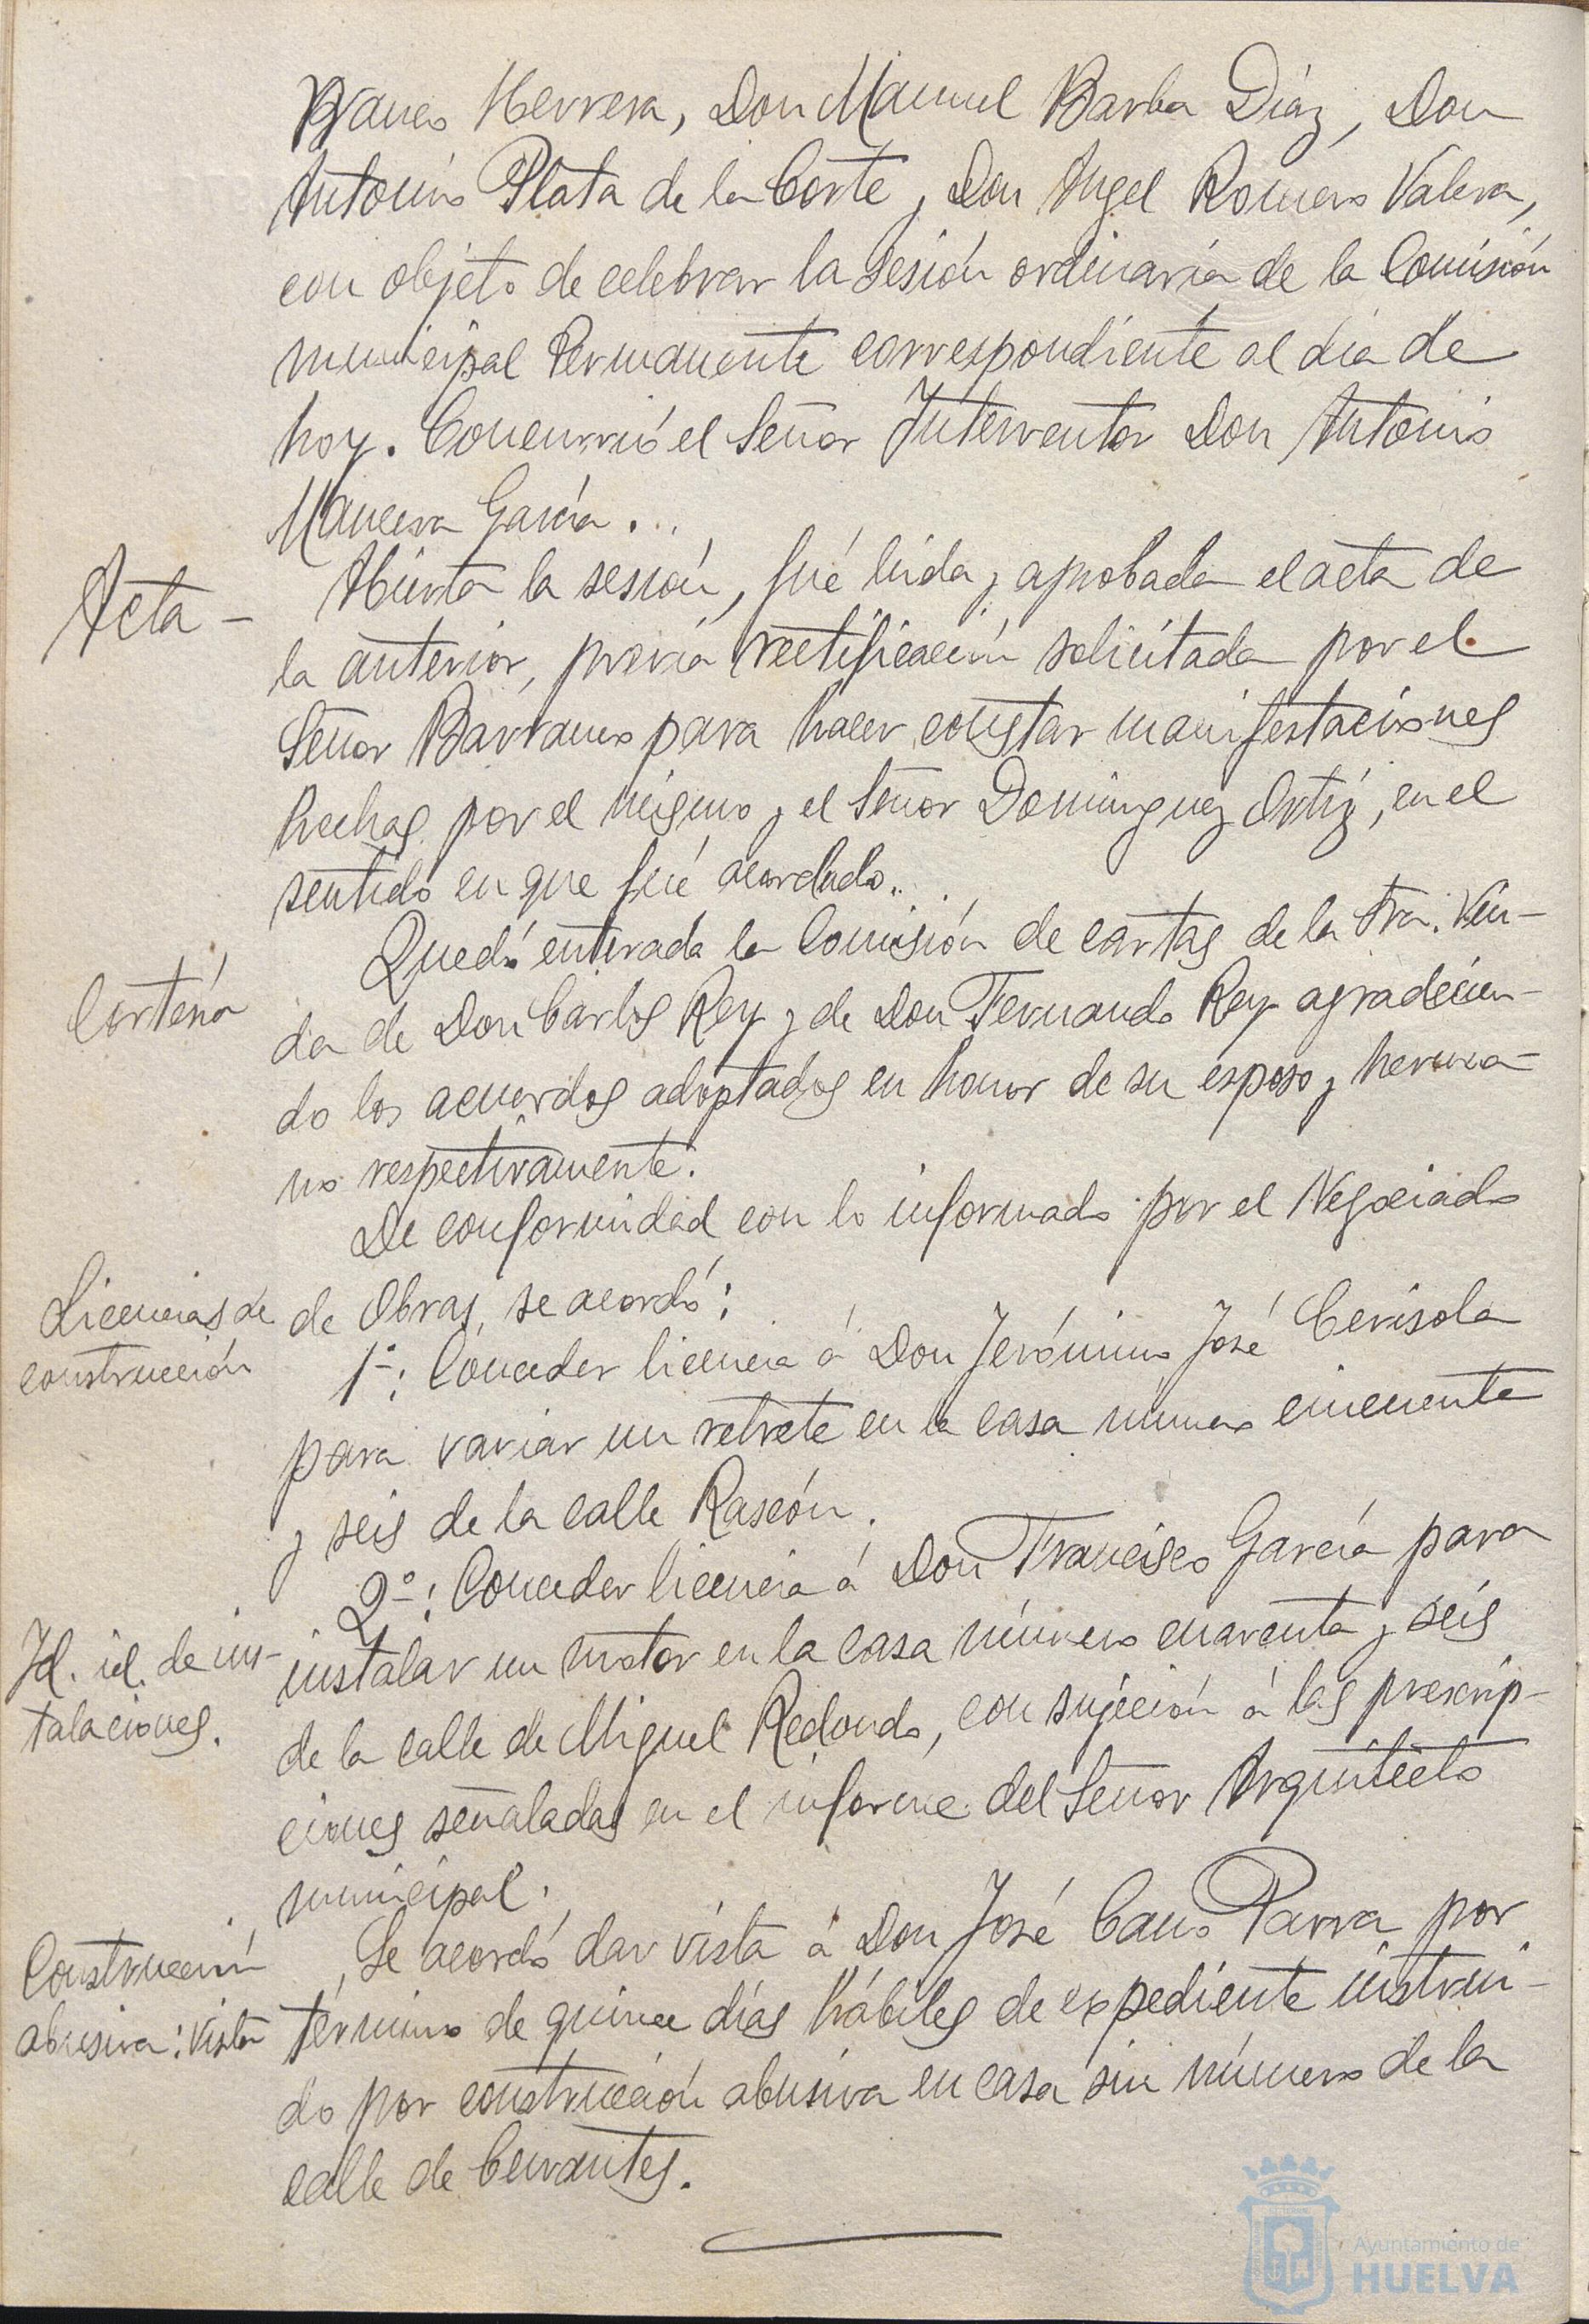 Blanco Herrera, Don Manuel Barba Díaz, Don
Antonio Plata de la Corte y Don Angel Romero Valera,
con objeto de celebrar la sesión ordinaria de la Comisión
municipal Permanente correspondiente al día de
hoy. Concurrió el Señor Interventor Don Antonio
Mancera García.
Acta -
Abierta la sesión, fué leida y aprobada el acta de
la anterior, previa rectificación solicitada por el
Señor Barranco para hacer constar manifestaciones
hechas por el mismo y el Señor Dominguez Ortiz, en el
sentido en que fué acordado.
Cortesía
Quedó enterada la Comisión de cartas de la Sra. Viu-
da de Don Carlos Rey y de Don Fernando Rey agradecien-
do los acuerdos adoptados en honor de su esposo y herma-
no respectivamente.
De conformidad con lo informado por el Negociado
Licencias de
construcción
de Obras, se acordó:
1º: Conceder licencia á Don Jerónimo José Cerisola
para variar un retrete en la casa número cincuenta
y seis de la calle Rascón.
2º: Conceder licencia á Don Francisco García para
Id. id. de ins-
talaciones.
instalar un motor en la casa número cuarenta y seis
de la calle de Miguel Redondo, con sujeción á las prescrip-
ciones señaladas en el informe del Señor Arquitecto
municipal.
Construcción
abusiva: vista
Se acordó dar vista á Don José Cano Parra por
término de quince días hábiles de expediente instrui-
do por construcción abusiva en casa sin número de la
calle de Cervantes.
Ayuntamiento de
HUELVA